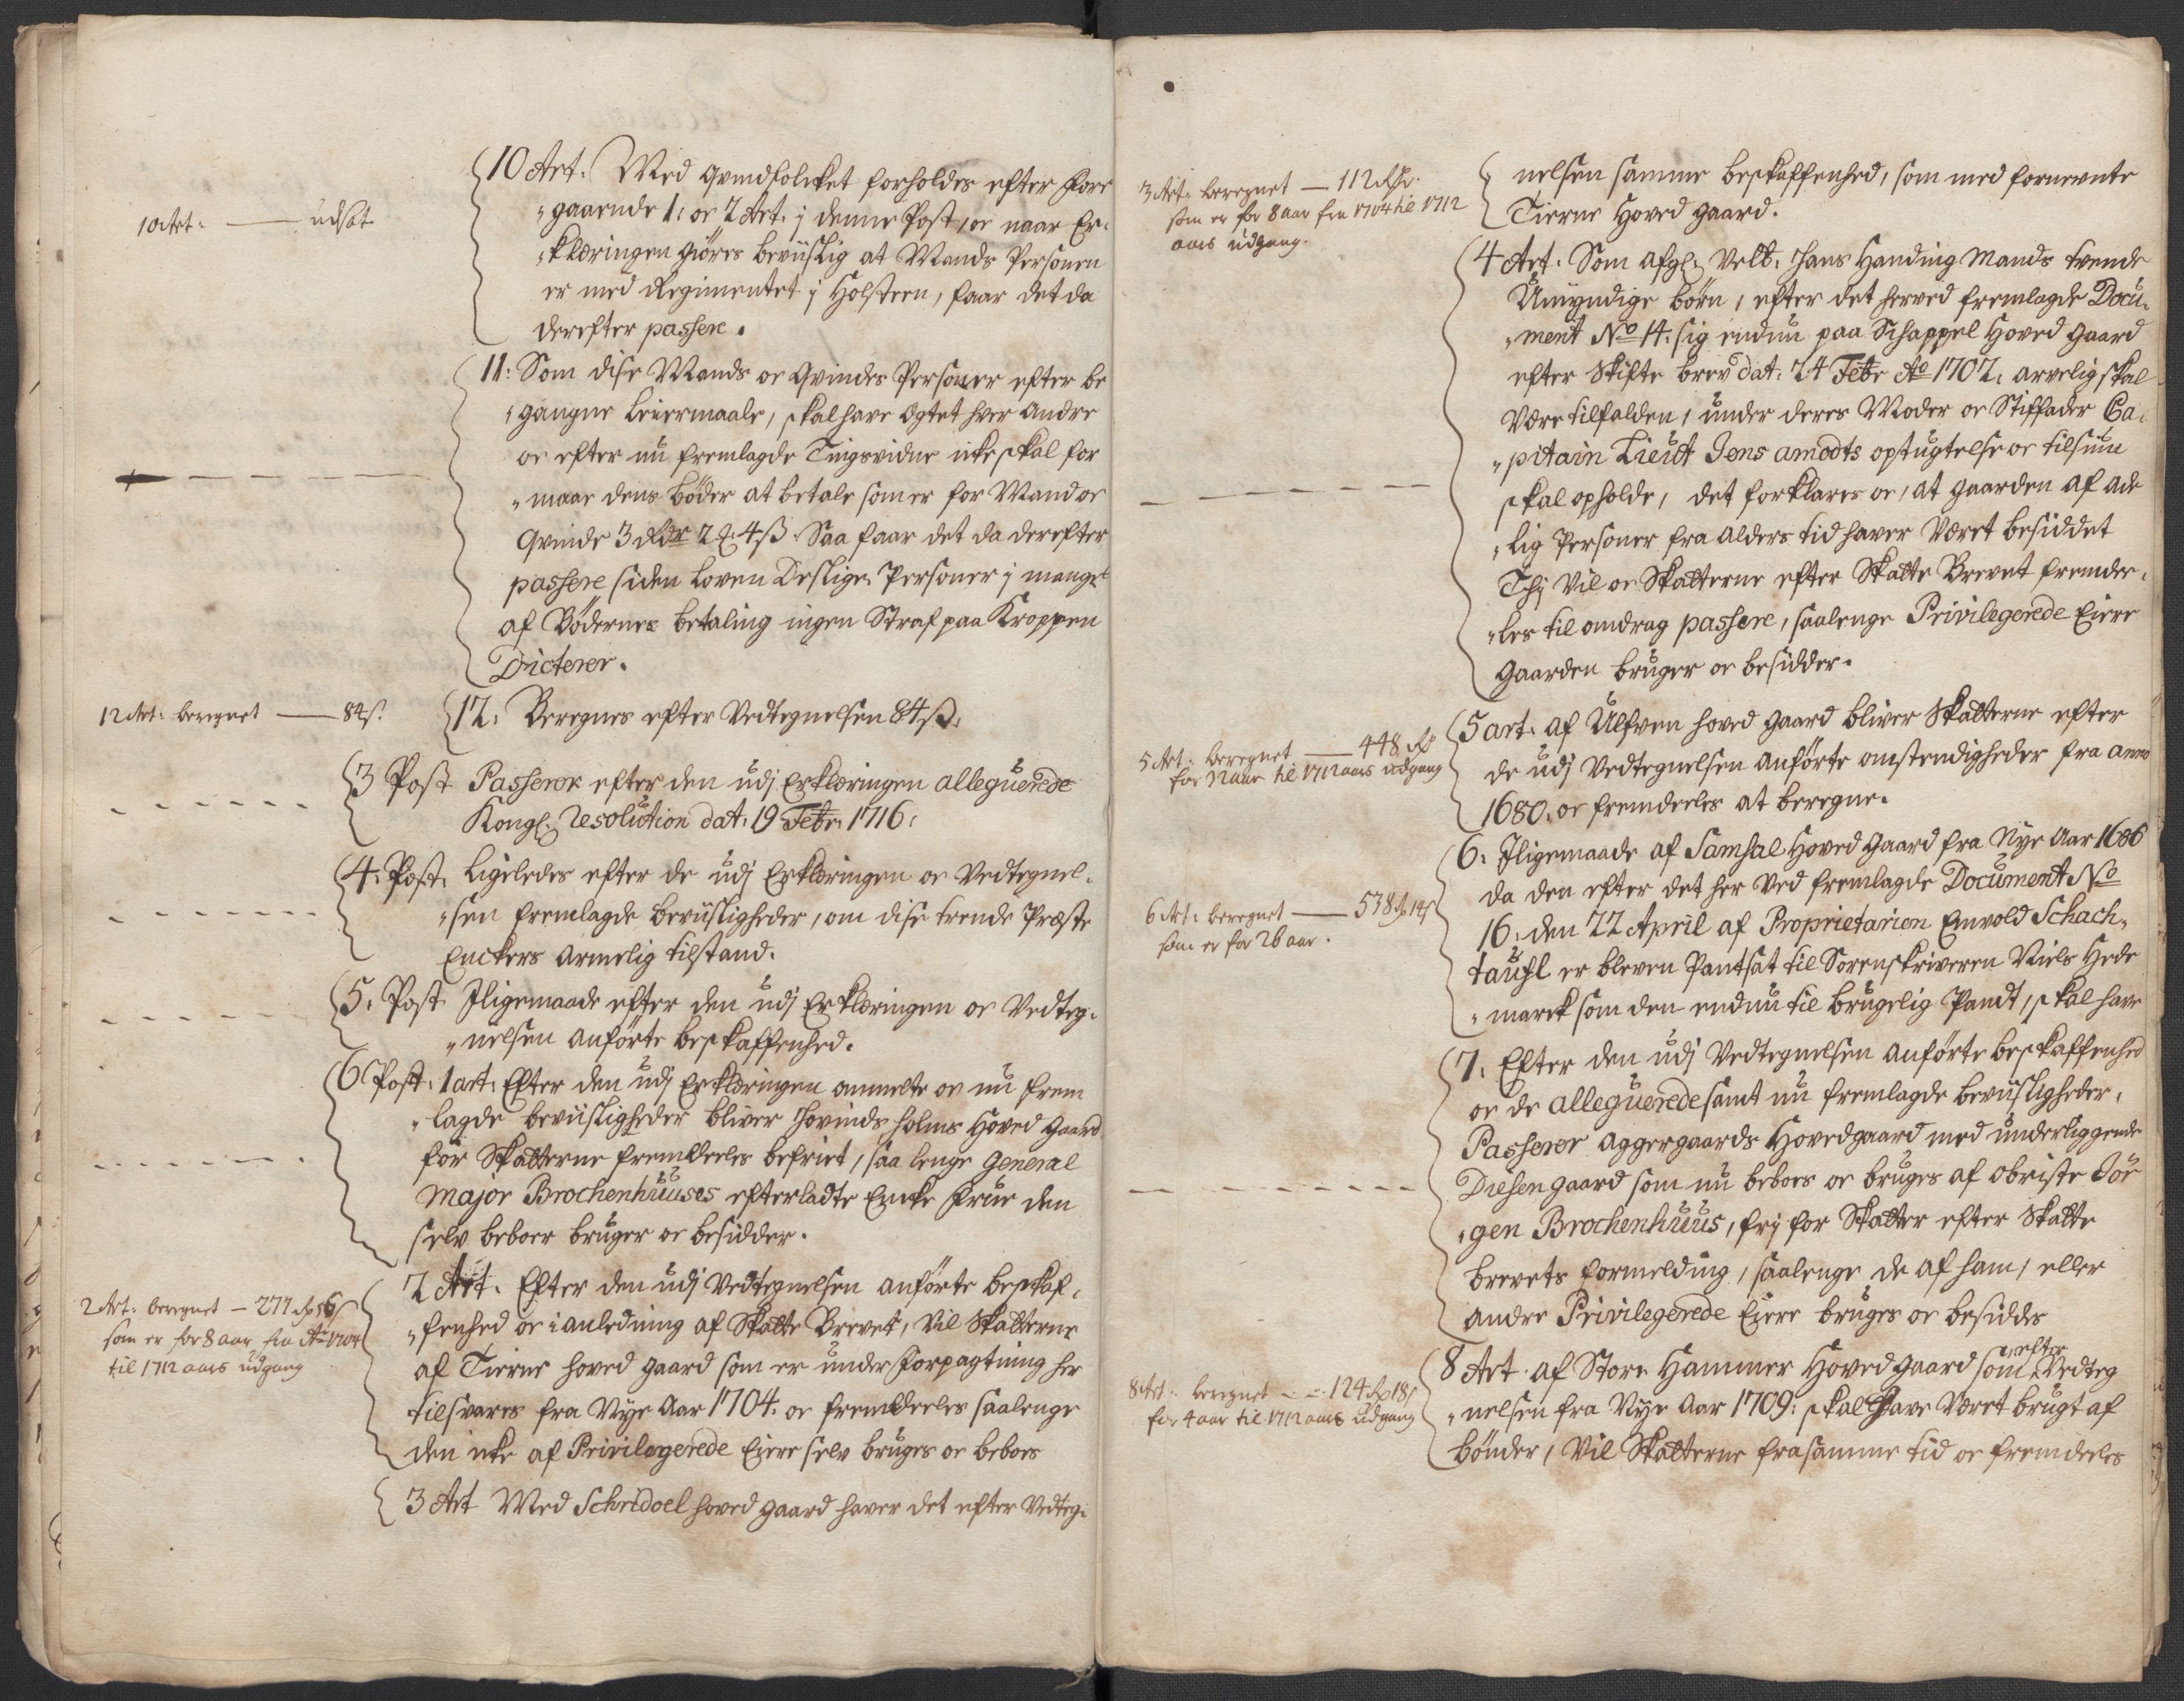 10 Art: — udsat
10 Art. Med Qvindfolcket forholdes efter Fore
„gaaende 1: oc 2 Art. j denne Post, oc naar Er„
„klæringen giøres beviislig at Mands Personen
er med Regimentet j Holsteen, faar det da
derefter passere.
11: Som dise Mands oc Qvindes Personer efter be
„gangne Leiermaale, skal have Egtet hver andre
oc efter nu fremlagde Tingsvidne icke skal for
„maae dens bøder at betale som er for Mand oc
Qvinde 3 Rdr 2 ℔: 4 ß. Saa faar det da derefter
passere siden Loven Deslige Personer j mangel
af Bødernes betaling ingen Straf paa Kroppen
Dicterer.
12 Art: beregnet — 84 ß.
12. Beregnes efter Vedtegnelsen 84 ß.
3 Post Passerer efter den udj Erklæringen alleguerede
Kongl. Resolution dat: 19 Febr: 1716:
4. Post. Ligeledes efter de udj Erklæringen oc Vedtegnel„
„sen fremlagde beviisligheder, om dise trende Præste
Enckers armelig tilstand.
5. Post Iligemaade efter den udj Erklæringen oc Vedteg„
„nelsen anførte beskaffenhed.
6 Post. 1 art. Efter den udj Erklæringen ommelte oc nu frem
„lagde beviisligheder bliver Hovinds holms Hoved Gaard
for Skatterne fremdeeles befriet, saa lenge General
Major Brochenhuuses efterladte Encke Frue den
selv beboer bruger oc besidder.
2 Art: beregnet — 277 Rd 56 ß
som er for 8 aar fra Ao 1704
til 1712 aars udgang
2 Art. Efter den udj Vedtegnelsen anførte beskaf„
„fenhed oc i anledning af Skatte Brevet, vil Skatterne
af Tierne hoved gaard som er under Forpagtning her
tilsvares fra Nye Aar 1704. oc fremdeeles saalenge
den icke af Privilegerede Eiere selv bruges oc beboes
3 Art Med Schridoel hoved gaard haver det efter Vedteg„
3 Art: beregnet — 112 Rdr.
som er for 8 aar fra 1704 til 1712
aars udgang.
„nelsen samme beskaffenhed, som med fornevnte
Tierne Hoved gaard.
4 Art. Som afgl: Velb: Hans Handing Mands tvende
Umyndige børn, efter det herved fremlagde Docu„
„ment No 14. sig endnu paa Schappel Hoved Gaard
efter Skifte brev dat: 24 Febr Ao 1702. arvelig skal
være tilfalden, under deres Moder oc Stiffader Ca„
„pitain Lieut Jens amodts optugtelse oc tilsiun
skal opholde, det forklares oc, at gaarden af ade
„lig Personer fra Alders tid haver været besiddet
Thj vil oc Skatterne efter Skatte Brevet fremdee„
„les til omdrag passere, saalenge Privilegerede Eiere
Gaarden bruger oc besidder.
5 Art: beregnet — 448 Rd
for aar til 1712 aars udgang
5 art. af Ulfven hoved gaard bliver Skatterne efter
de udj Vedtegnelsen anførte omstendigheder fra anno
1680. oc fremdeeles at beregne.
6 Art: beregnet — 538 Rd 14 ß
som er for 26 aar.
6. Iligemaade af Samsal Hoved Gaard fra Nye Aar 1686
da den efter det her ved fremlagde Document No
16. den 22 April af Proprietarien Envold Schach„
taufl er bleven Pantsat til Sorenskriveren Niels Hede
„marck som den endnu til brugelig Pandt, skal have
7. Efter den udj Vedtegnelsen anførte beskaffenhed
oc de alleguerede samt nu fremlagde beviisligheder,
Passerer Aggergaards Hovedgaard med underliggende
Diesen gaard som nu beboes oc bruges af Obriste Jør
„gen Brochenhuus, frj for Skatter efter Skatte
brevets formelding, saalenge de af ham, eller
andre Privilegerede Eiere bruges oc besiddes
8 Art: beregnet — 124 Rd 18 ß
for 4 aar til 1712 aars udgang
8 Art. af Store Hammer Hoved Gaard som efter Vedteg
„nelsen fra Nye Aar 1709. skal have været brugt af
bønder, vil Skatterne fra samme tid oc fremdeeles